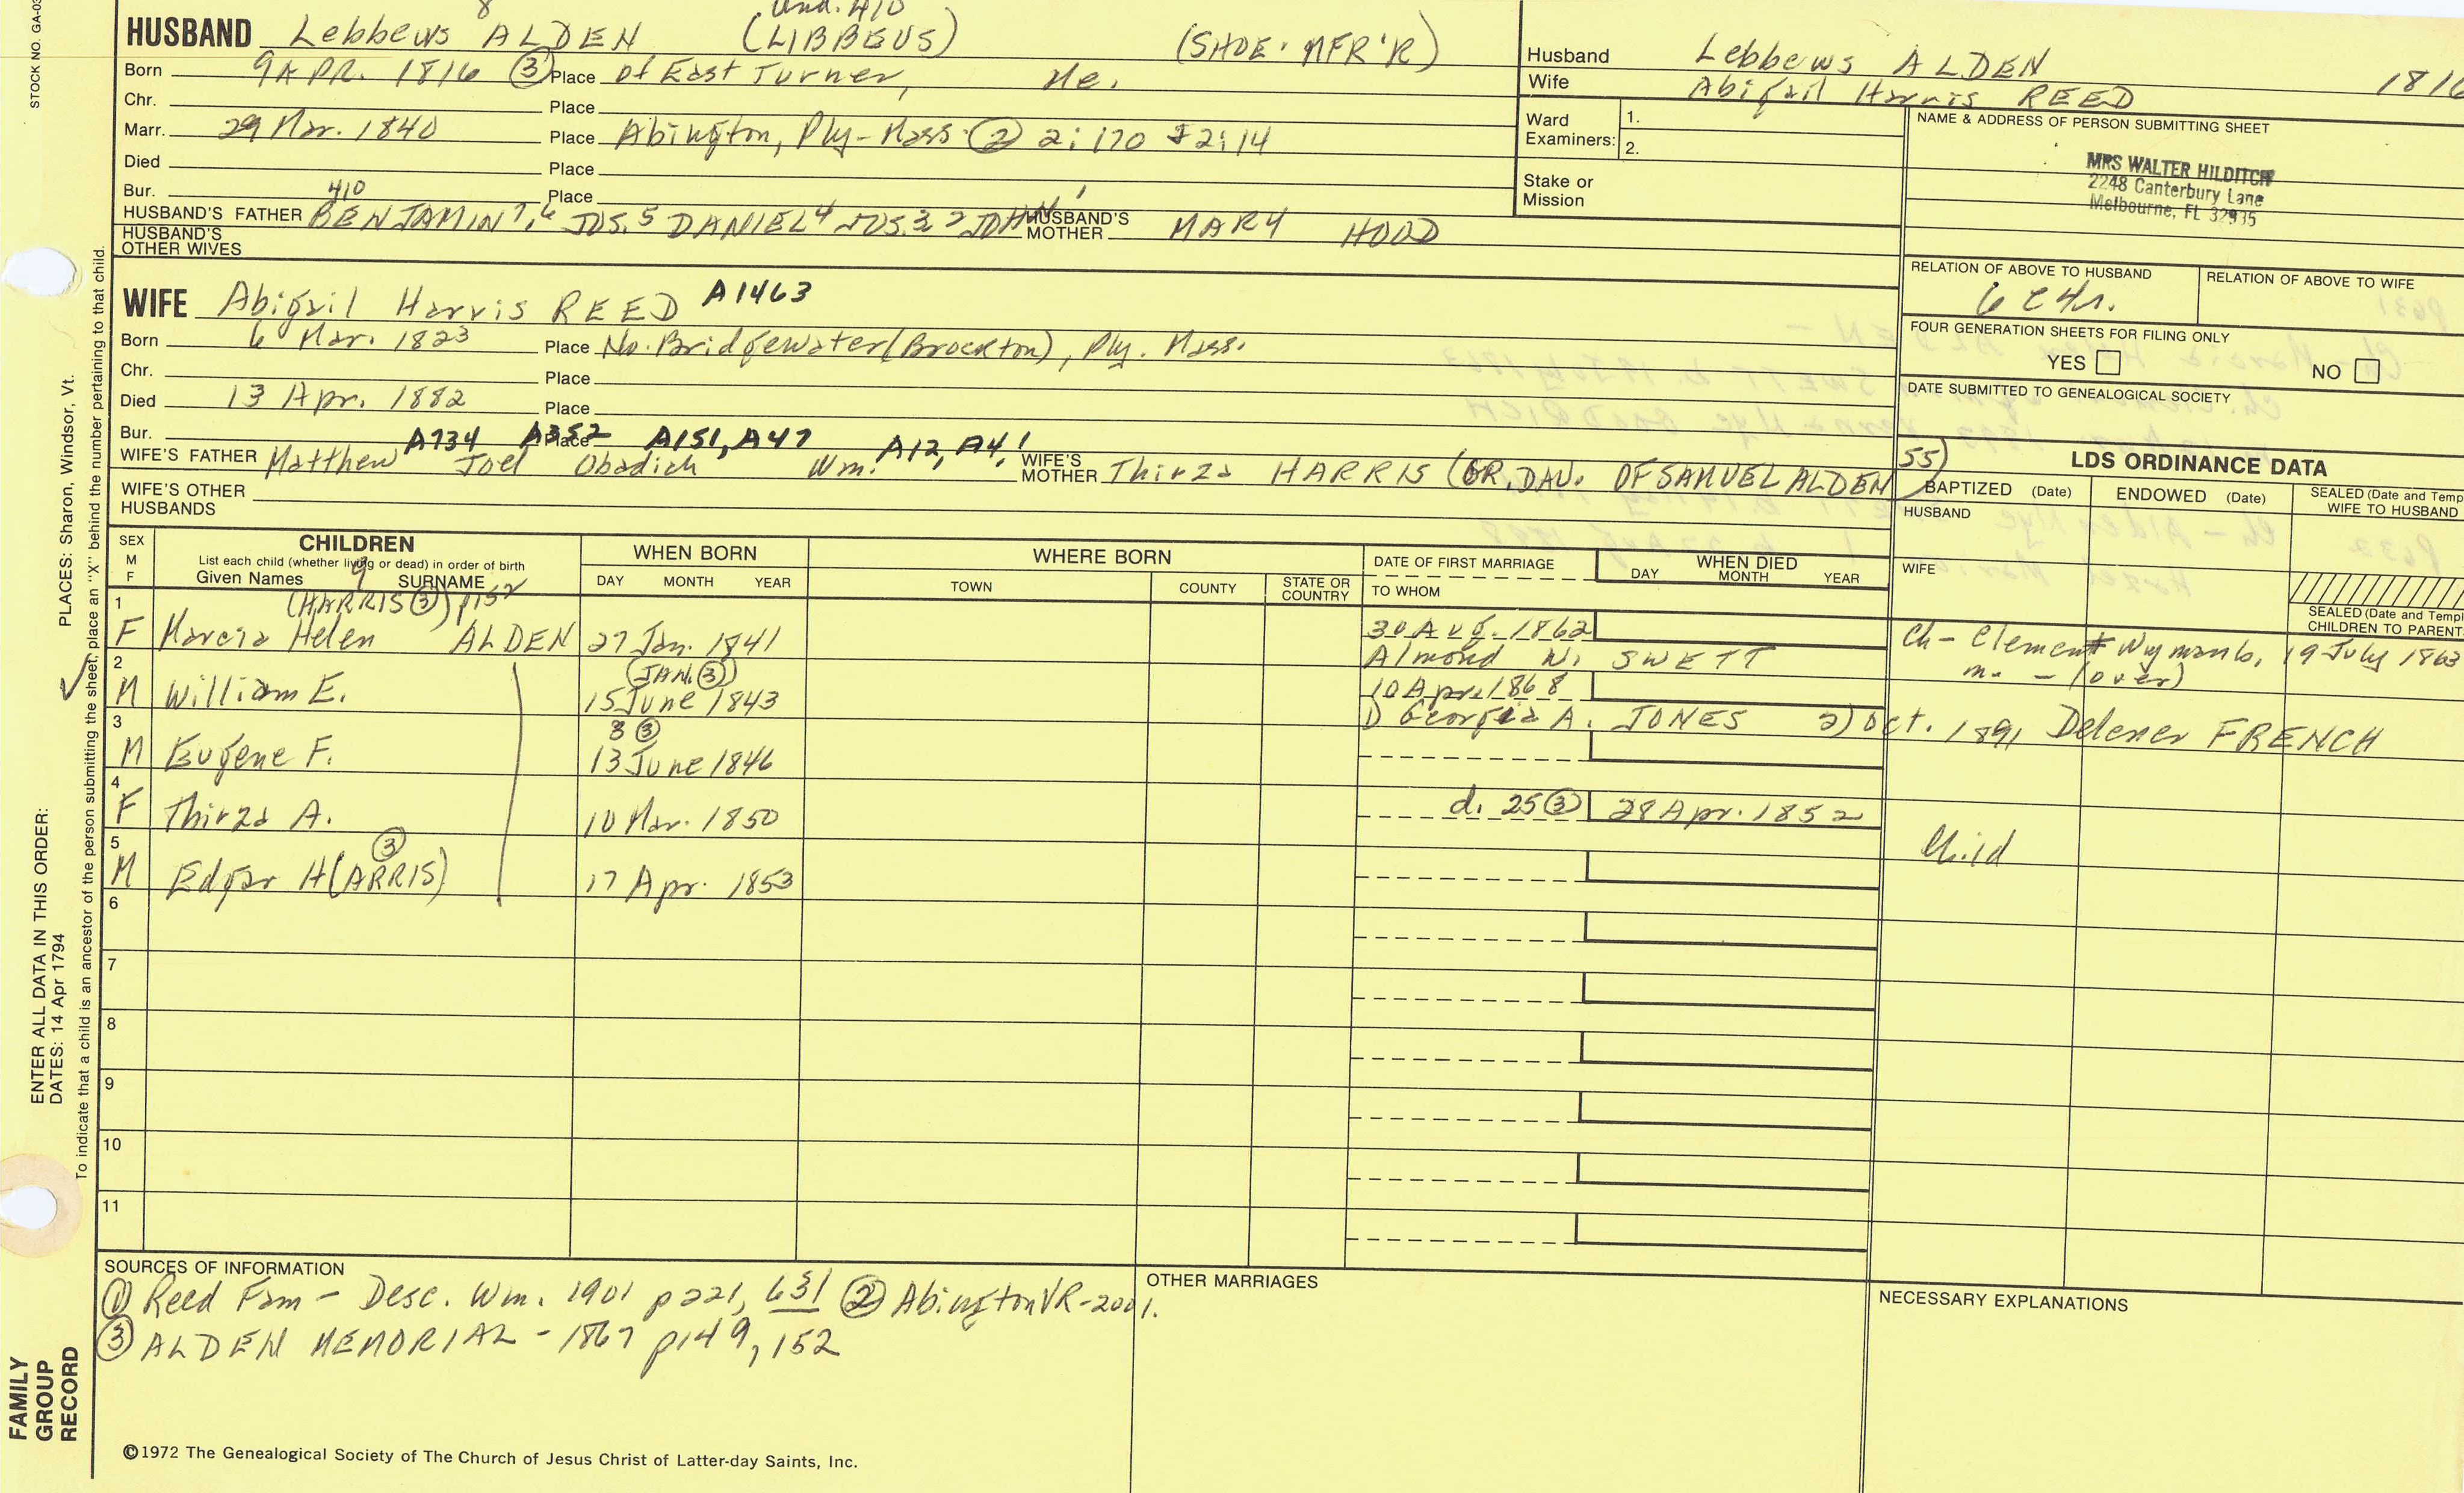 STOCK NO. GA-03
8
Und. 410
HUSBAND Lebbews ALDEN (LIBBEUS) (SHOE. MFR'R)
Born 9 APR. 1816 ③ Place of East Turner, Me.
Chr. Place
Marr. 29 Mar. 1840 Place Abington, Ply-Mass ② 2:170 & 2:14
Died Place
Bur. Place
410
HUSBAND'S FATHER BENJAMIN 7,6 JOS.5 DANIEL4 JOS.3 2 JOHN1 HUSBAND'S MOTHER MARY HOOD
HUSBAND'S OTHER WIVES
Husband Lebbews ALDEN 1816
Wife Abigail Harris REED
Ward Examiners: 1.
2.
Stake or Mission
NAME & ADDRESS OF PERSON SUBMITTING SHEET
MRS WALTER HILDITCH
2248 Canterbury Lane
Melbourne, FL 32935
RELATION OF ABOVE TO HUSBAND RELATION OF ABOVE TO WIFE
6 C 4r.
FOUR GENERATION SHEETS FOR FILING ONLY
YES NO
DATE SUBMITTED TO GENEALOGICAL SOCIETY
WIFE Abigail Harris REED A1463
Born 6 Mar. 1823 Place No. Bridgewater (Brockton), Ply. Mass.
Chr. Place
Died 13 Apr. 1882 Place
Bur. Place
A734 A352 A151, A47 A12, A4,1
WIFE'S FATHER Matthew Joel Obadiah Wm. WIFE'S MOTHER Thirza HARRIS (GR. DAU. OF SAMUEL ALDEN 55)
WIFE'S OTHER HUSBANDS
LDS ORDINANCE DATA
BAPTIZED (Date) ENDOWED (Date) SEALED (Date and Temp
WIFE TO HUSBAND
HUSBAND
WIFE
SEALED (Date and Templ
CHILDREN TO PARENT
SEX M F
CHILDREN
List each child (whether living or dead) in order of birth
Given Names SURNAME
9
WHEN BORN
DAY MONTH YEAR
WHERE BORN
TOWN COUNTY STATE OR COUNTRY
DATE OF FIRST MARRIAGE
TO WHOM
WHEN DIED
DAY MONTH YEAR
(HARRIS ③) p152
1 F Marcia Helen ALDEN 27 Jan. 1841 30 Aug. 1862
Almond N. SWETT
Ch - Clement Wyman b. 19 July 1863
m. - (over)
(JAN. ③)
2 M William E. 15 June 1843 10 Apr. 1868
1) Georgia A. JONES 2) Oct. 1891 Delener FRENCH
8 ③
3 M Eugene F. 13 June 1846
4 F Thirza A. 10 Mar. 1850 d. 25 ③ 28 Apr. 1852
Child
③
5 M Edgar H(ARRIS) 17 Apr. 1853
6
7
8
9
10
11
SOURCES OF INFORMATION
① Reed Fam - Desc. Wm. 1901 p221, 631 ② Abington VR-2001.
③ ALDEN MEMORIAL - 1867 p149, 152
OTHER MARRIAGES
NECESSARY EXPLANATIONS
©1972 The Genealogical Society of The Church of Jesus Christ of Latter-day Saints, Inc.
FAMILY GROUP RECORD
ENTER ALL DATA IN THIS ORDER:
DATES: 14 Apr 1794
PLACES: Sharon, Windsor, Vt.
To indicate that a child is an ancestor of the person submitting the sheet, place an "X" behind the number pertaining to that child.